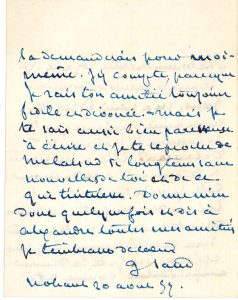 la demanderais pour moi-
même. J'y compte, parceque
je sais ton amitié toujours
fidèle et dévouée. mais je
te sais aussi bien paresseuse
à écrire et je te reproche de
me laisser si longtems sans
nouvelles de toi et de ce
qui t'intéresse. Donne m'en
donc quelquefois et dis à
alexandre toutes mes amitiés
je t'embrasse de cœur
G Sand
Nohant 20 aout 59.